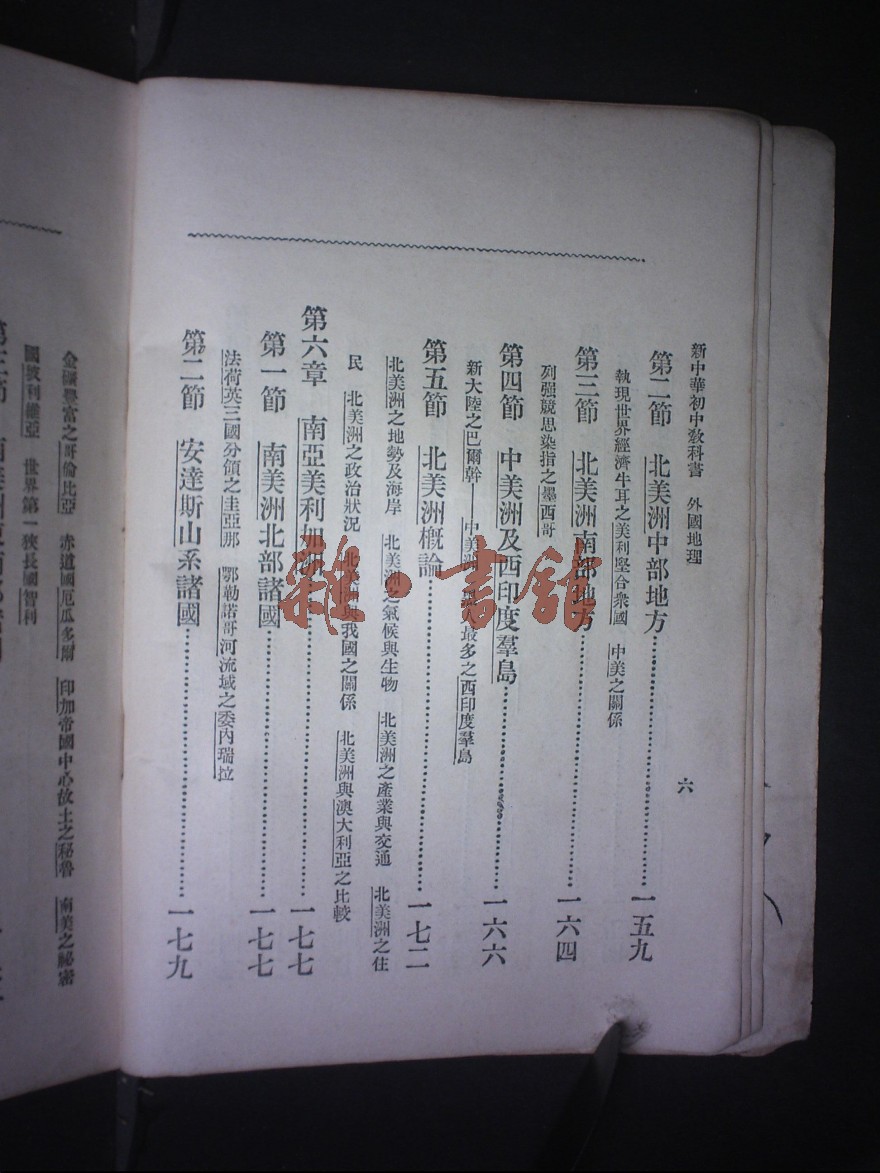 新中華初中教科書 外國地理 六
第二節 北美洲中部地方……一五九
執現世界經濟牛耳之美利堅合衆國 中美之關係
第三節 北美洲南部地方……一六四
列强競思染指之墨西哥
第四節 中美洲及西印度羣島……一六六
新大陸之巴爾幹——中美洲 最多之西印度羣島
第五節 北美洲槪論……一七二
北美洲之地勢及海岸 北美洲之氣候與生物 北美洲之產業與交通 北美洲之住
民 北美洲之政治狀況 北美洲與我國之關係 北美洲與澳大利亞之比較
第六章 南亞美利加洲……一七七
第一節 南美洲北部諸國……一七七
法荷英三國分領之圭亞那 鄂勒諾哥河流域之委內瑞拉
第二節 安達斯山系諸國……一七九
金礦豐富之哥倫比亞 赤道國厄瓜多爾 印加帝國中心故土之秘魯 南美之祕密
國玻利維亞 世界第一狹長國智利
雜·書館